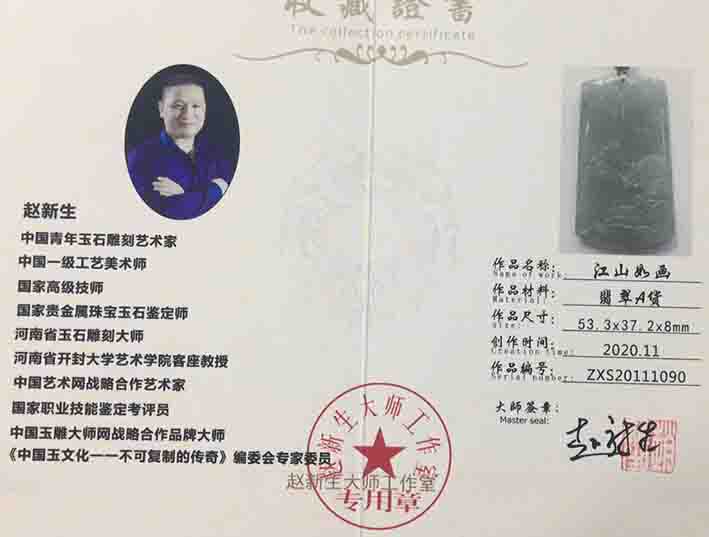 收藏證書
The collection certificate
赵新生
中国青年玉石雕刻艺术家
中国一级工艺美术师
国家高级技师
国家贵金属珠宝玉石鉴定师
河南省玉石雕刻大师
河南省开封大学艺术学院客座教授
中国艺术网战略合作艺术家
国家职业技能鉴定考评员
中国玉雕大师网战略合作品牌大师
《中国玉文化一一不可复制的传奇》编委会专家委员
赵新生大师工作室
专用章
赵新生大师工作室
作品名称: 江山如画
Name of work:
作品材料: 翡翠A货
Material:
作品尺寸: 53.3x37.2x8mm
Size:
创作时间: 2020.11
Creation time:
作品编号: ZXS20111090
Serial number:
大师签章:
Master seal:
赵新生